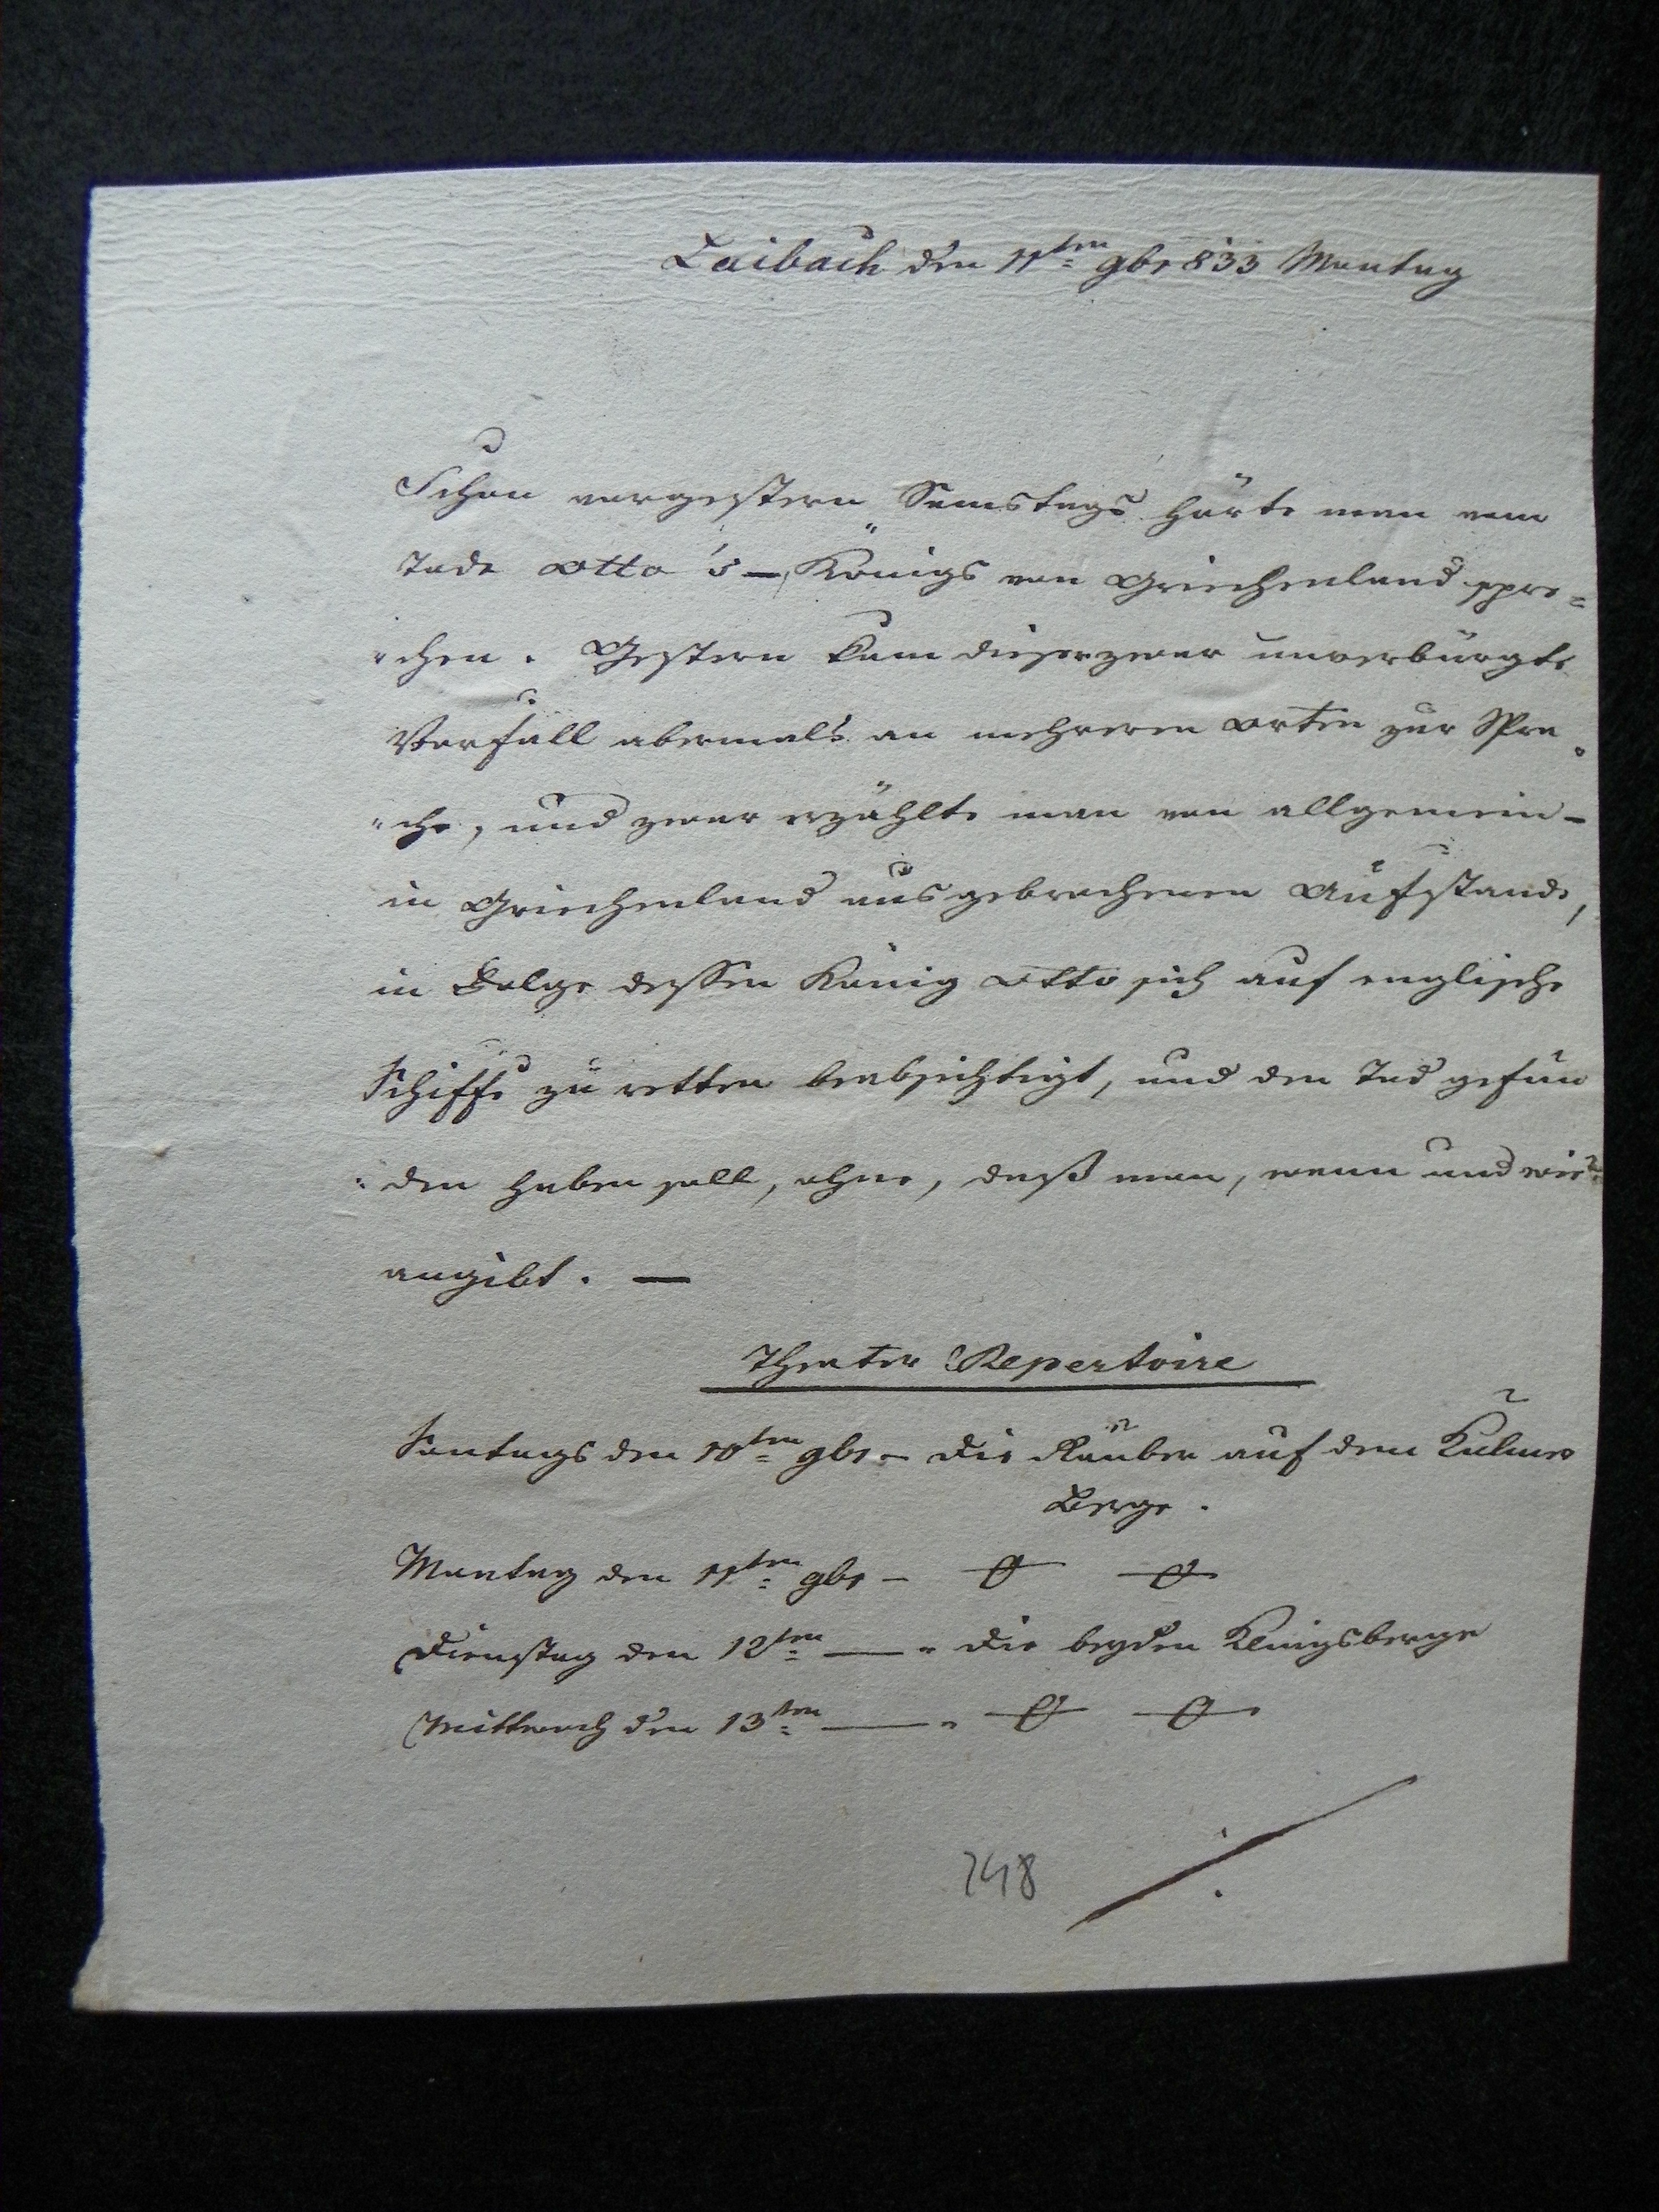 Laibach den 11ten 9br 833 Montag
Schon vorgestern Samstags hörte man vom
Tode Otto's – Königs von Griechenland spre=
"chen. Gestern kam dieser zwar unverbürgte
Vorfall abermals an mehreren Orten zur Spra
"che, und zwar erzählte man von allgemein –
in Griechenland ausgebrochenen Aufstande,
in Folge dessen König Otto sich auf englische
Schiffe zu retten beabsichtigt, und den Tod gefun
"den haben soll, ohne, daß man, wann und wie?
angibt. —
Theater Repertoire
Sontags den 10ten 9br – Die Räuber auf dem
Berge.
Montag den 11ten 9br – 0 0
Dienstag den 12ten — " Die beyden Klingsberge
Mittwoch den 13ten — " 0 0
748